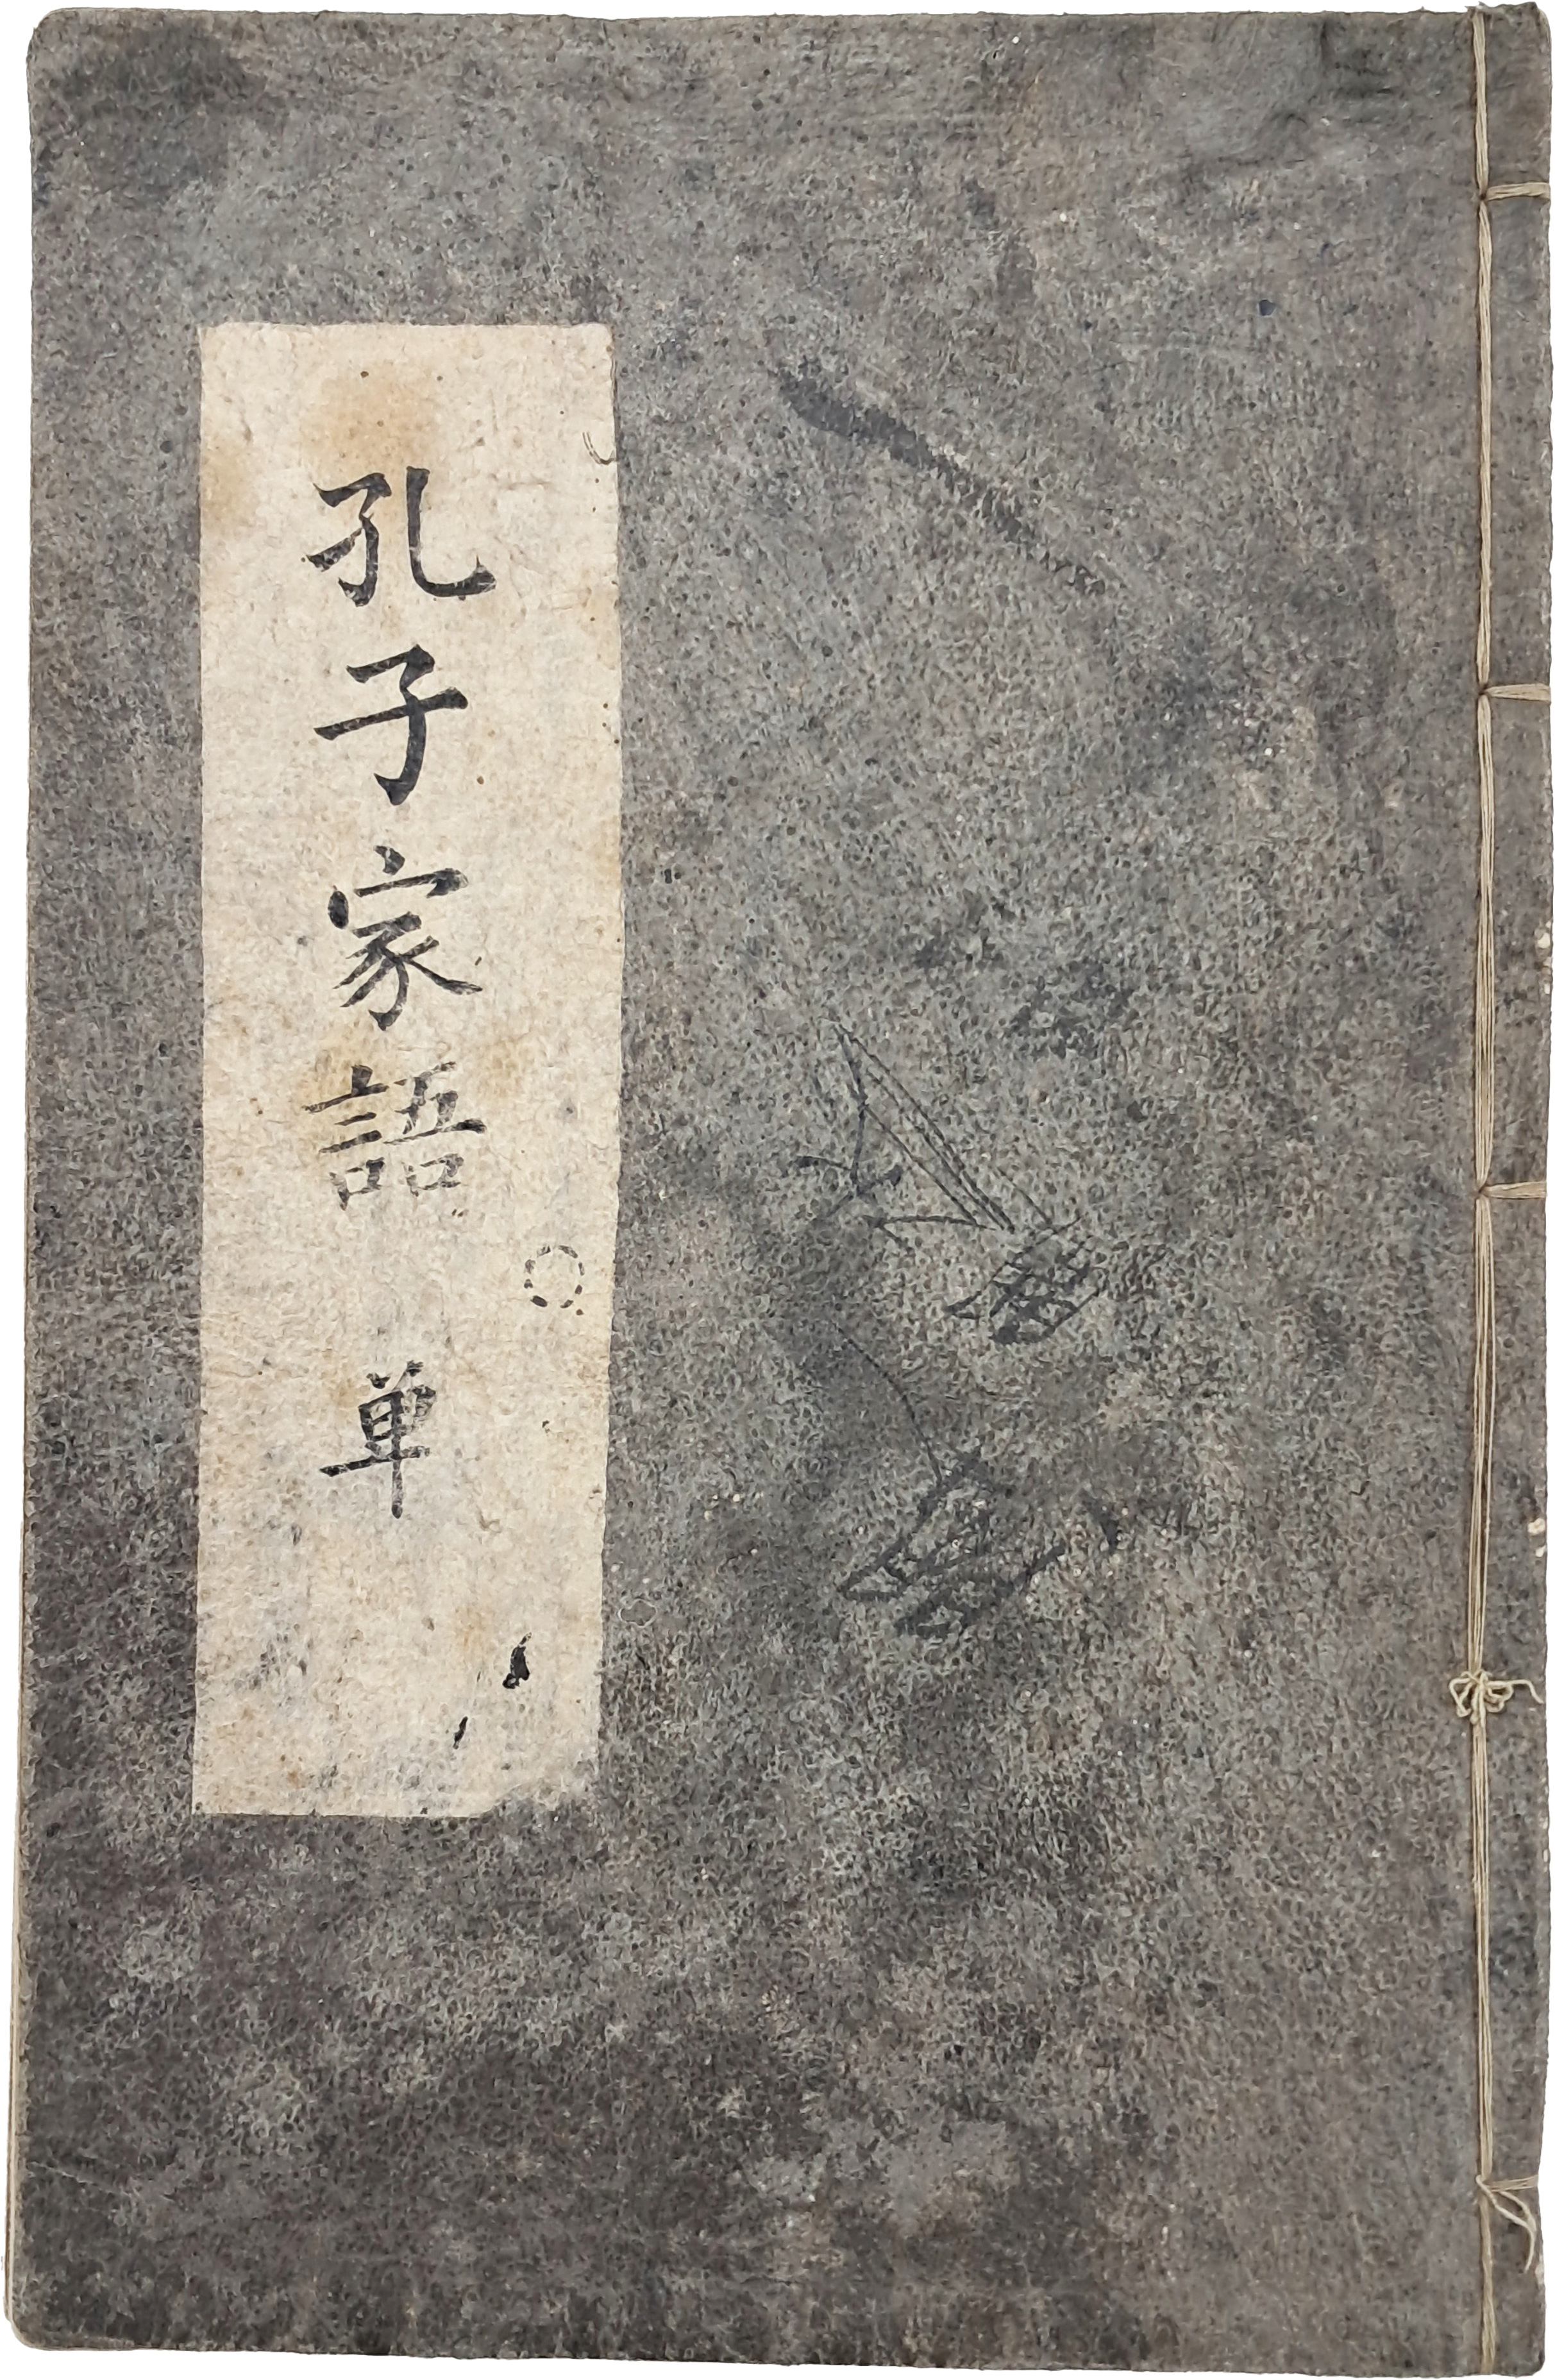 孔子家語 単